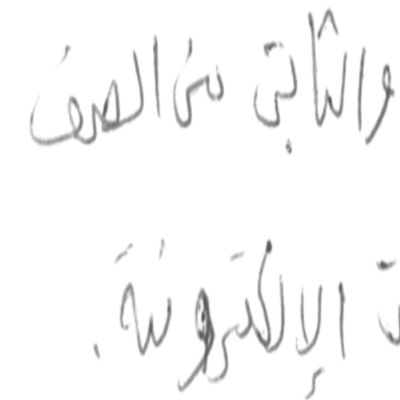 والثاني من الصف
الإلكترونية .